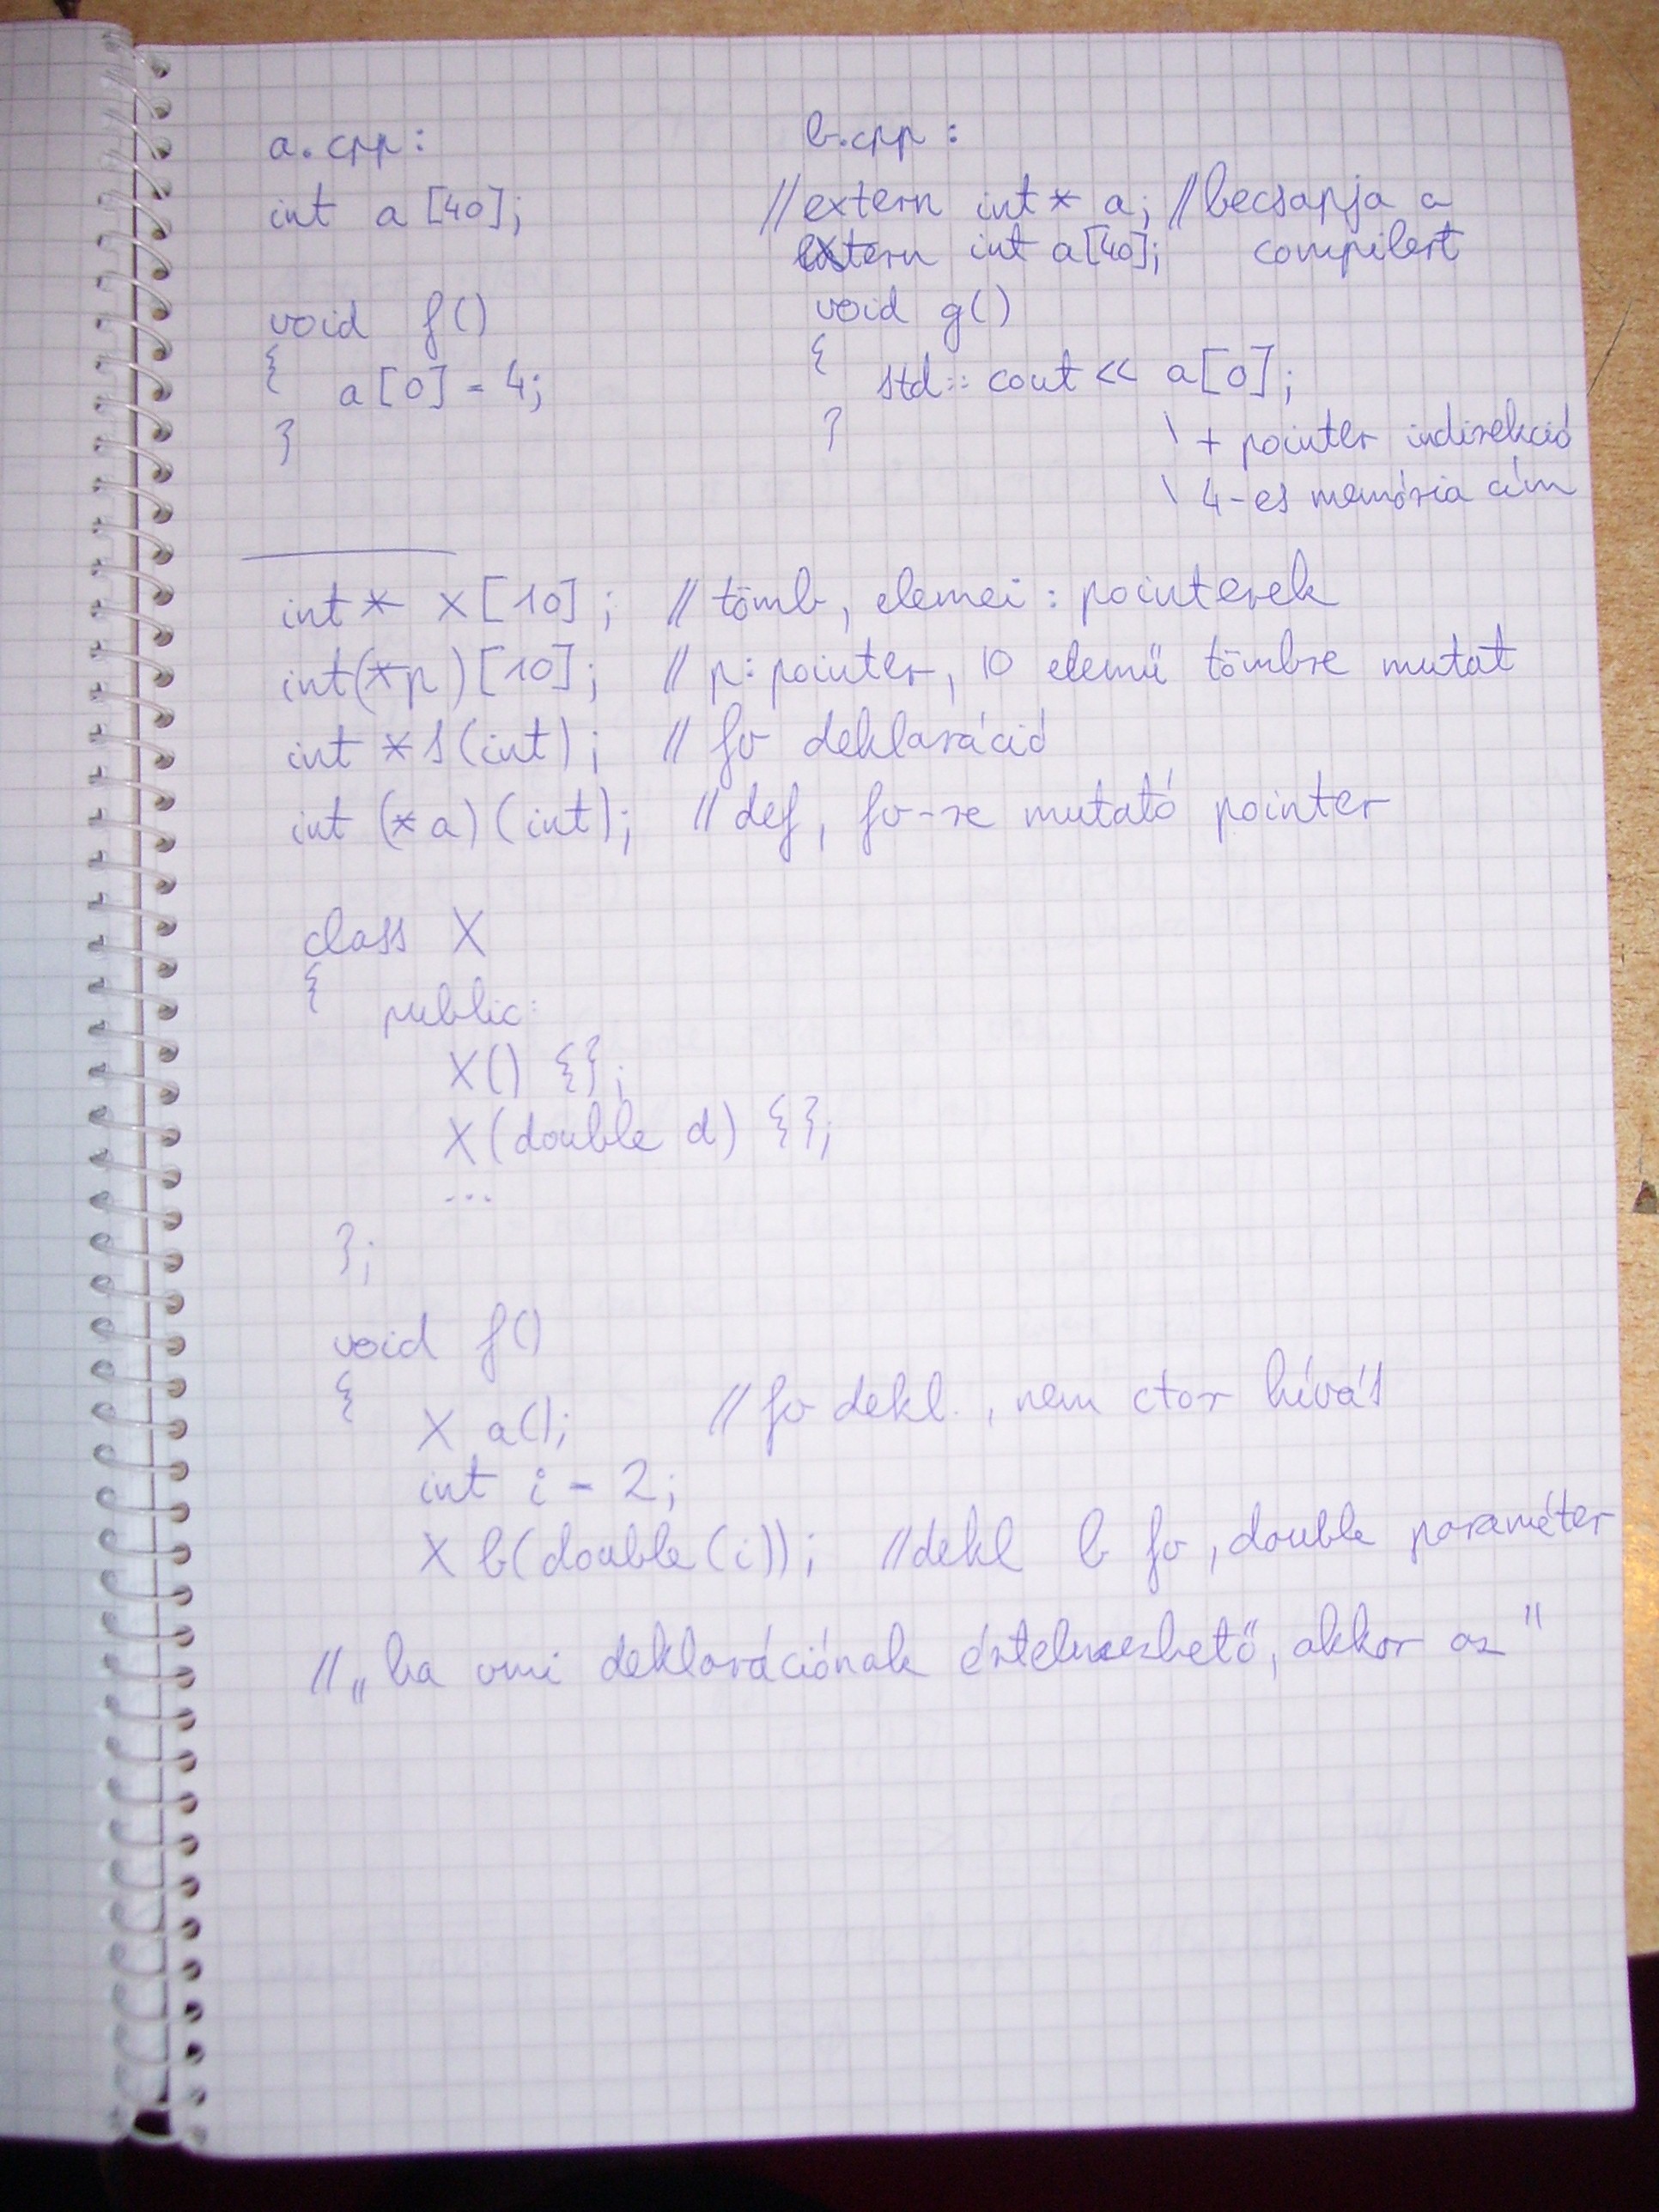 a.cpp:
int a[40];
void f()
{
a[0] = 4;
}
b.cpp:
//extern int* a; //becsapja a
extern int a[40]; compilert
void g()
{
std::cout << a[0];
}
\ + pointer indirekció
\ 4-es memória cím
int* x[10]; // tömb, elemei: pointerek
int(*p)[10]; // p: pointer, 10 elemű tömbre mutat
int *s(int); // fv deklaráció
int (*a)(int); // def, fv-re mutató pointer
class X
{
public:
X() {};
X(double d) {};
...
};
void f()
{
X a(); // fv dekl., nem ctor hívás
int i = 2;
X b(double(i)); //dekl b fv, double paraméter
// „ha vmi deklarációnak értelmezhető, akkor az"